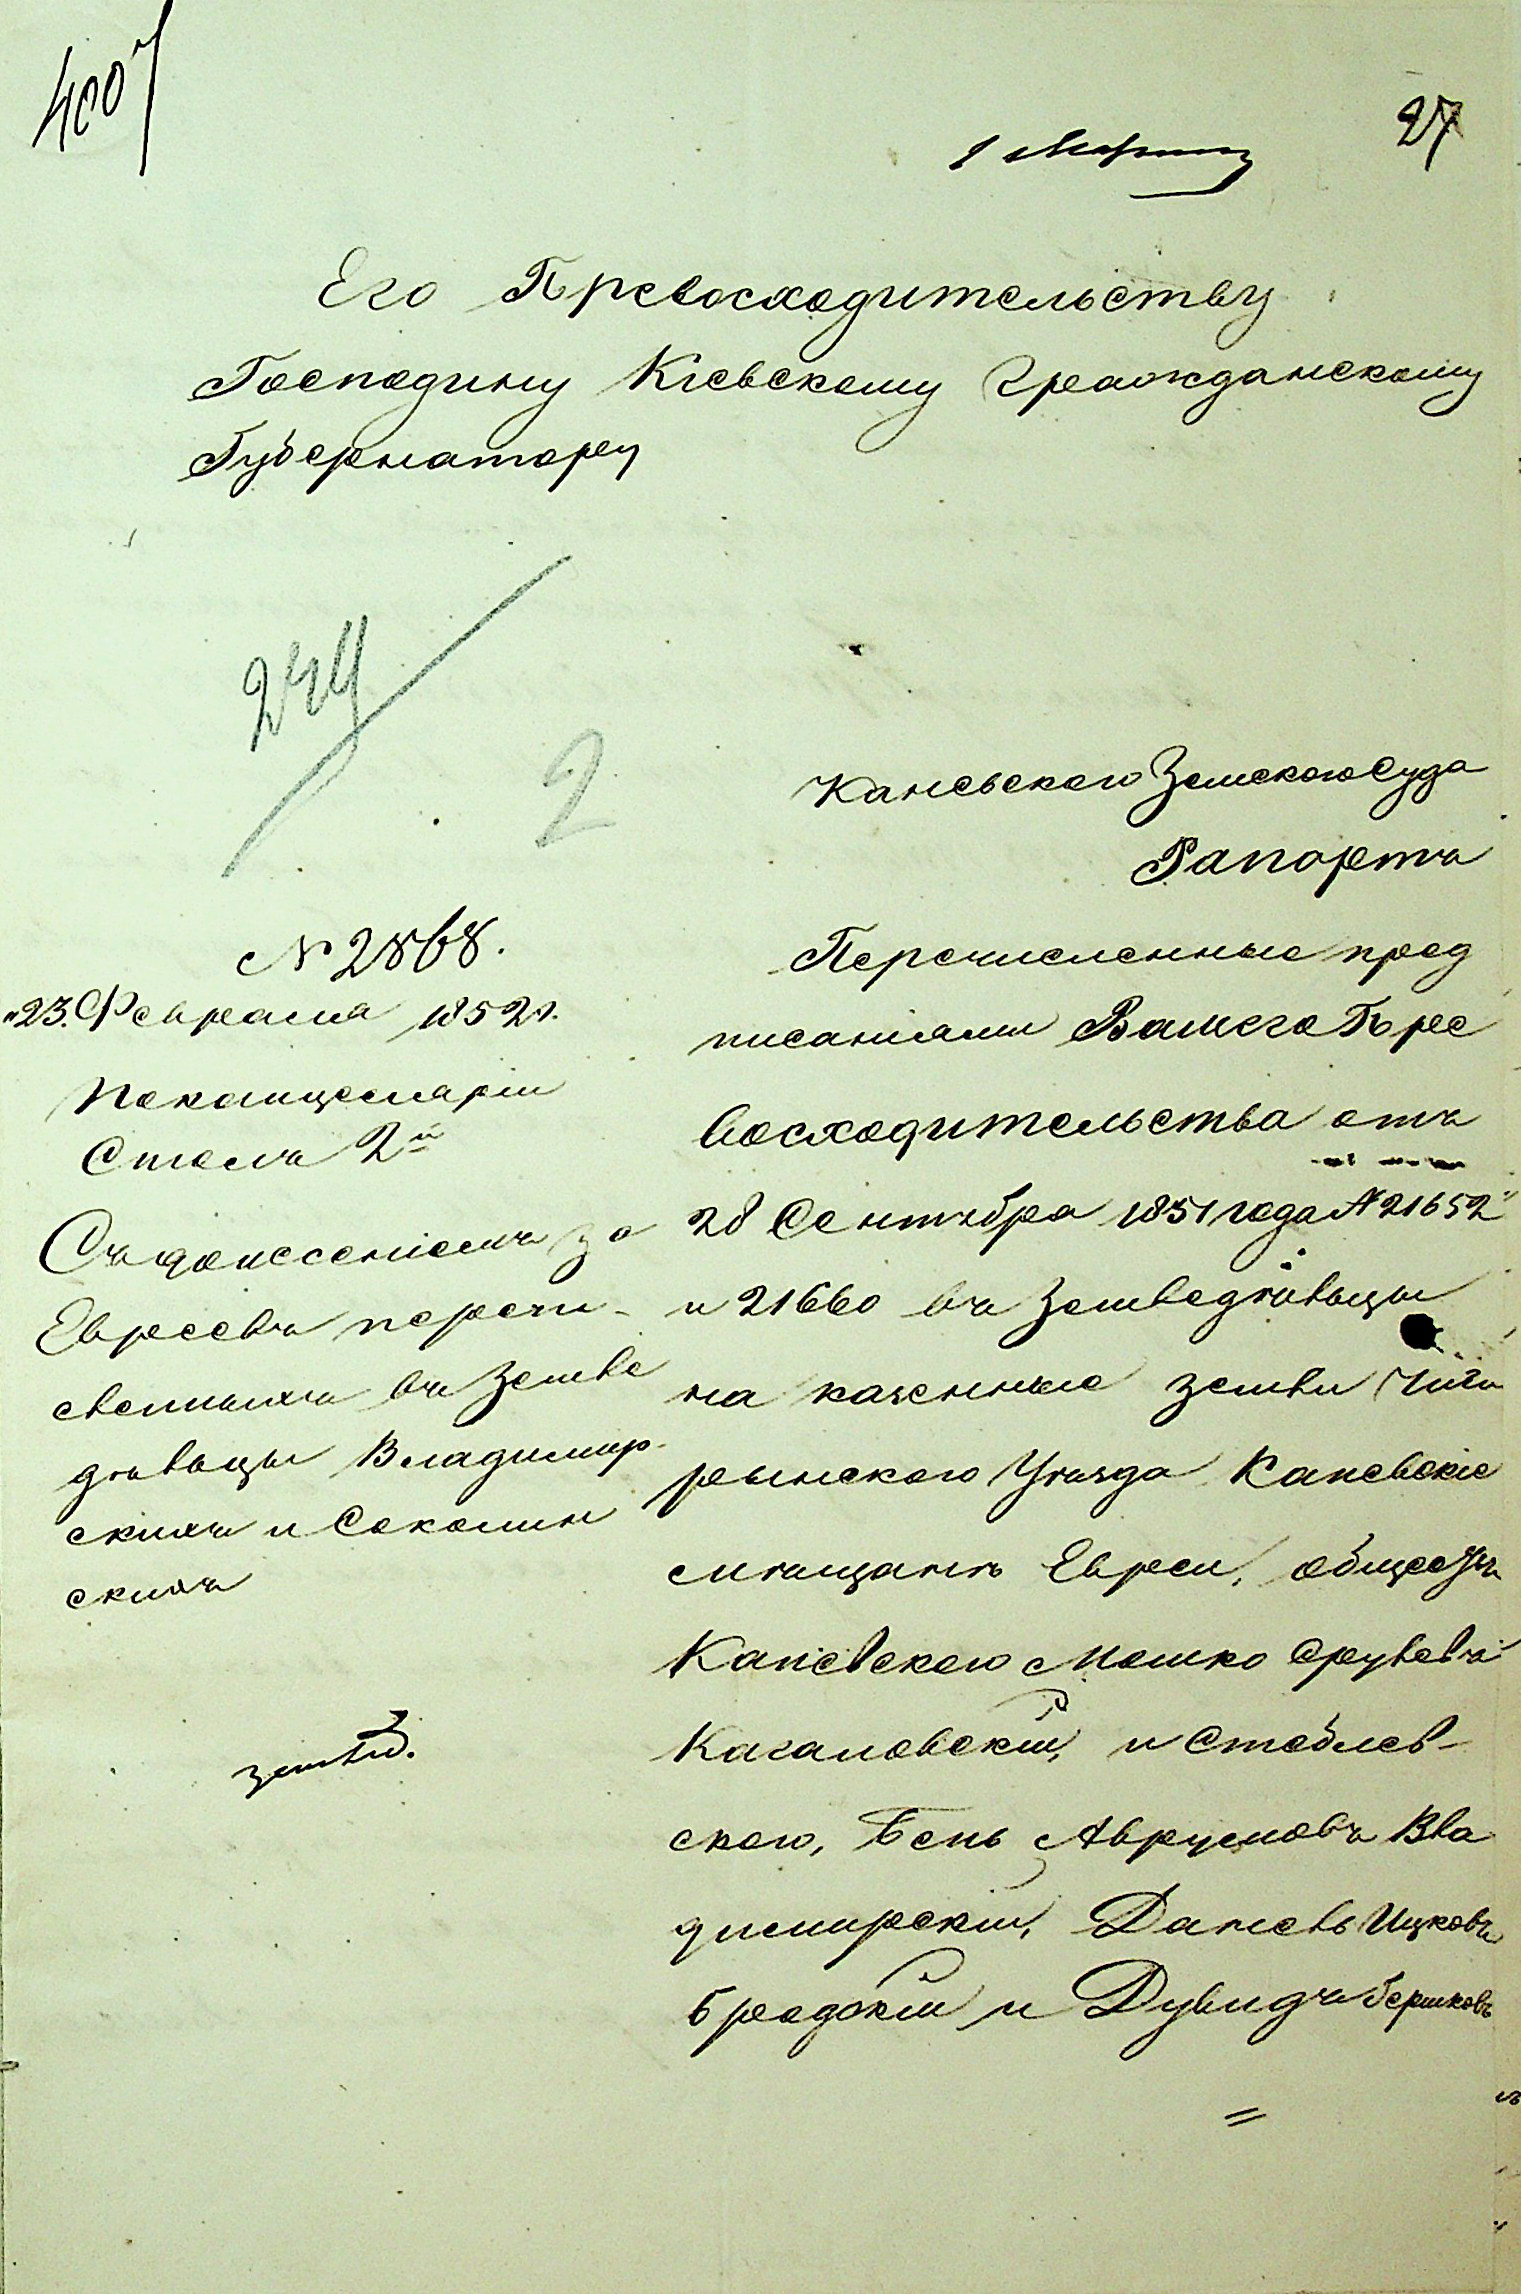 4007
27
1 Марта
Его Превосходительству
Господину Кіевскому Гражданскому
Губернатору
244
2
Каневского Земского Суда
Рапортъ
№ 2868.
"23. Февраля 1852 г.
По канцеляріи
Столъ 2й
Съ донесеніемъ за
Евреевъ перечи-
сленныхъ въ Земле
дѣльцы Владимир-
скихъ и Соколин
скихъ
Перечисленные пред
писаніями Вашего Пре
восходительства отъ
28 Сентября 1851 года № 21652
и 21660 въ Земледѣльцы
на казенные земли Чиги
рынского Уѣзда Каневскіе
мѣщане Евреи, обществъ
Каневского Мошко Срулевъ
Кагановскій, и Стеблев-
ского, Бень Аврумовъ Вла
димирскій, Даніель Ицковъ
Бродскій и Дувидъ Берковъ